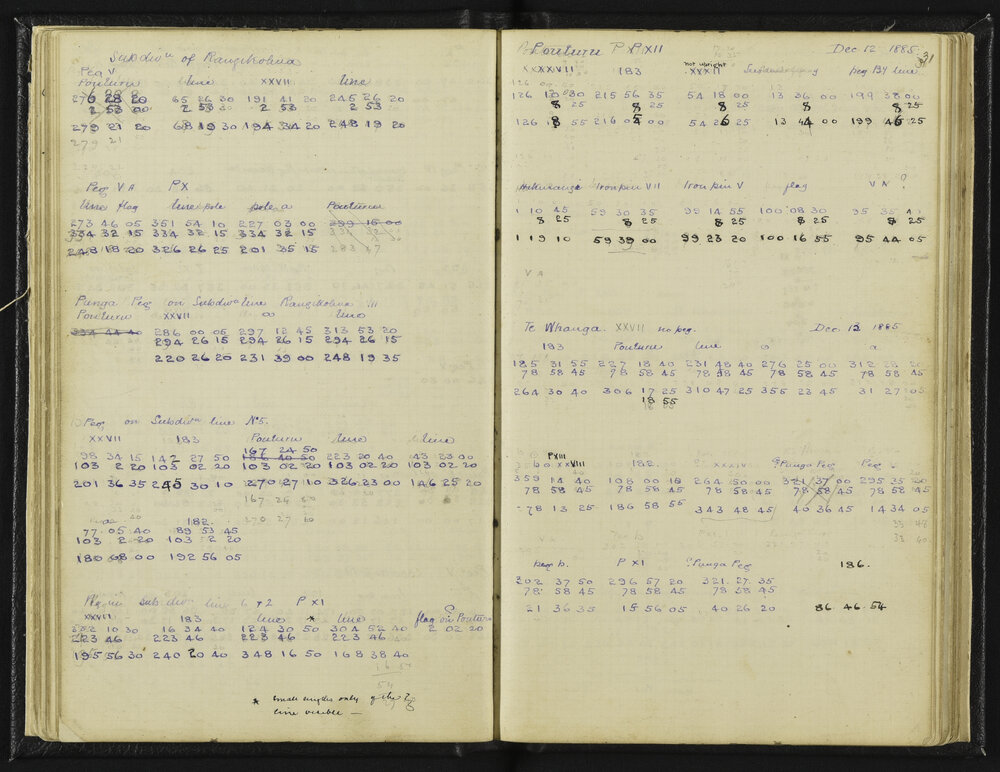 Subdivn of Rangikohua
Peg V
Pouturu line XXVII line
276 28 20 65 26 30 191 41 20 245 26 20
2 53 00 2 53 2 53 2 53
279 21 20 68 19 30 194 34 20 248 19 20
279 21
Peg VA PX
line flag line pole pole a Pouturu
273 46 05 351 54 10 227 03 00 299 15 00
334 32 15 334 32 15 334 32 15
248 18 20 326 26 25 201 35 15 283 47
Punga Peg on Subdivn line Rangikohua III
Pouturu XXVII a line
334 44 40 286 00 05 297 12 45 313 53 20
294 26 15 294 26 15 294 26 15
220 26 20 231 39 00 248 19 35
Peg on Subdivn line No 5.
XXVII 183 Pouturu line line
167 24 50
98 34 15 142 27 50 166 40 50 223 20 40 43 23 00
103 2 20 103 02 20 103 02 20 103 02 20 103 02 20
201 36 35 245 30 10 270 27 10 326 23 00 146 25 20
167 24 20
182. 270 27 10
77 05 40 89 53 45
103 2 20 103 2 20
180 08 00 192 56 05
Peg in subdivn line 1 & 2 P XI
XXVII 183 line * line flag on Pouturu
332 10 30 16 34 40 124 30 50 304 52 40 2 02 20
223 46 223 46 223 46 223 46
195 56 30 240 20 40 348 16 50 168 38 40
* small angles only of the
line visible —
Pouturu P PXII Dec 12 1885
31
not upright
XXXXVII 183 XXXII peg BY line
126 10 30 215 56 35 54 18 00 13 36 00 199 38 00
8 25 8 25 8 25 8 8 25
126 8 55 216 05 00 54 26 25 13 44 00 199 46 25
Hikurangi Iron pin VII Iron pin V flag VA ?
1 10 45 59 30 35 99 14 55 100 08 30 95 35 40
8 25 8 25 8 25 8 25 8 25
1 19 10 59 39 00 99 23 20 100 16 55 95 44 05
VA
Te Whanga. XXVII no peg. Dec 12 1885
183 Pouturu line o a
185 31 55 227 18 40 231 48 40 276 25 00 312 28 20
78 58 45 78 58 45 78 58 45 78 58 45 78 58 45
264 30 40 306 17 25 310 47 25 355 23 45 31 27 05
18 55
PXIII
bo XXVIII 182. XXXIV ?Punga Peg Peg
359 14 40 108 00 10 264 50 00 321 37 00 295 35 20
78 58 45 78 58 45 78 58 45 78 58 45 78 58 45
78 13 25 186 58 55 343 48 45 40 36 45 14 34 05
peg b. P XI ?Punga Peg 186.
302 37 50 296 57 20 321 27 35
78 58 45 78 58 45 78 58 45
21 36 35 15 56 05 40 26 20 86.46.54